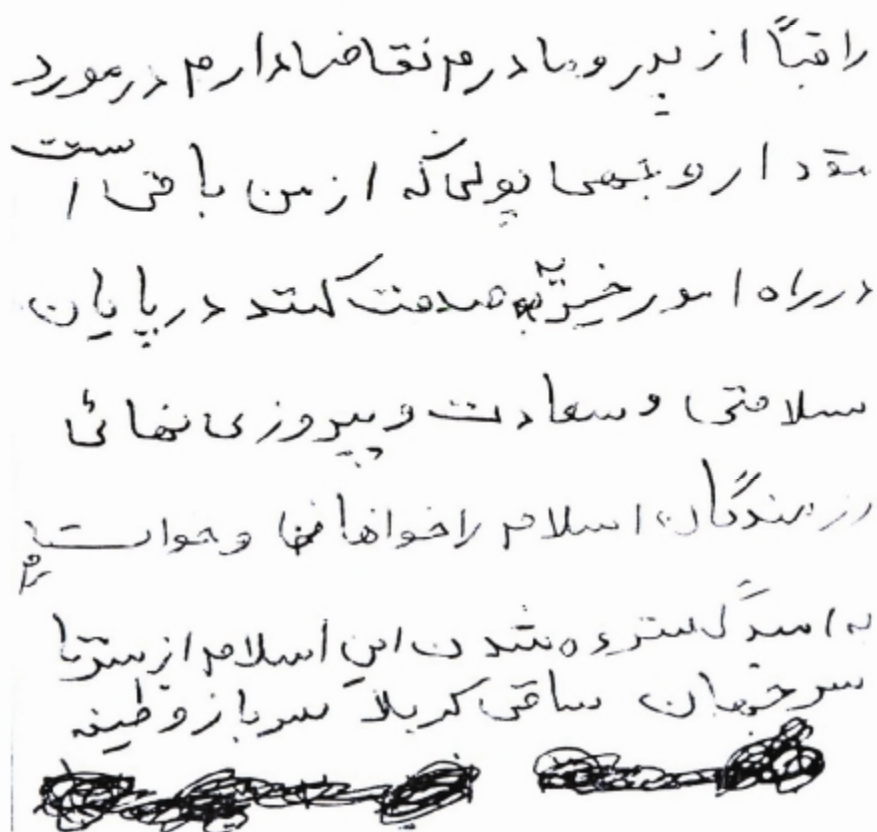 راقباً از پدر و مادرم تقاضا دارم در مورد
مقدار وجهی پولی که از من باقی است
در راه امور خیریّه صدقت کنند در پایان
سلامتی و سعادت و پیروزی نهائی
رزمندگان اسلام را خواهان و خواستارم
به امید گسترده شدن این اسلام از سرتا
سر جهان ساقی کربلا سرباز وظیفه